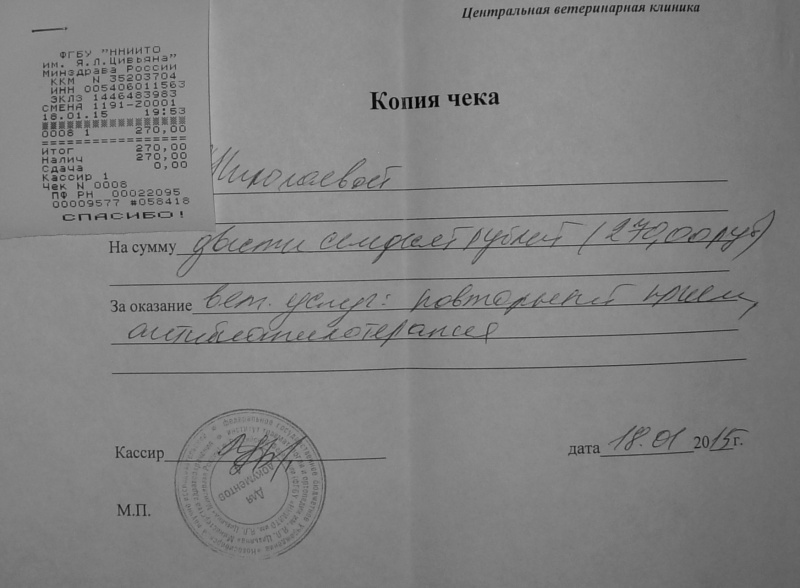 Центральная ветеринарная клиника
ФГБУ "ННИИТО
им. Я.Л.Цивьяна"
Минздрава России
ККМ N 35203704
ИНН 005406011563
ЭКЛЗ 1446483983
СМЕНА 1191-Z0001
18.01.15 19:53
0008 1 270,00
Итог 270,00
Налич 270,00
Сдача 0,00
Кассир 1
Чек N 0008
ПФ РН 00022095
00009577 #058418
СПАСИБО!
Копия чека
На сумму двести семьдесят рублей (270,00руб)
За оказание вет. услуг: повторный прием,
антибиотикотерапия
Кассир
дата 18.01 2015г.
М.П.
Для
документов